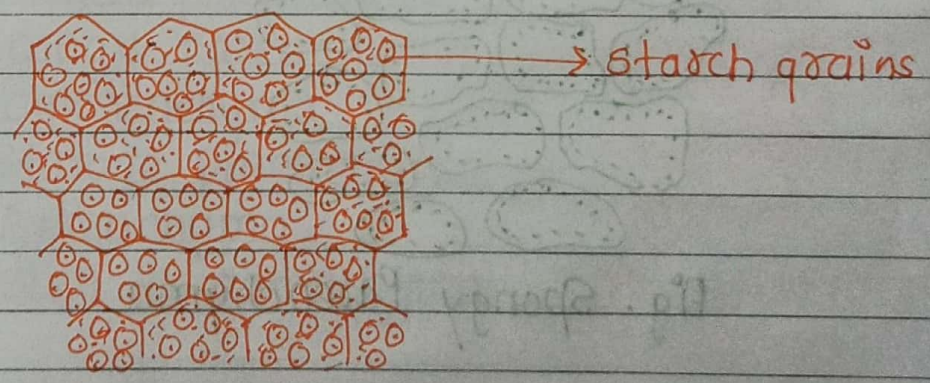 starch grains